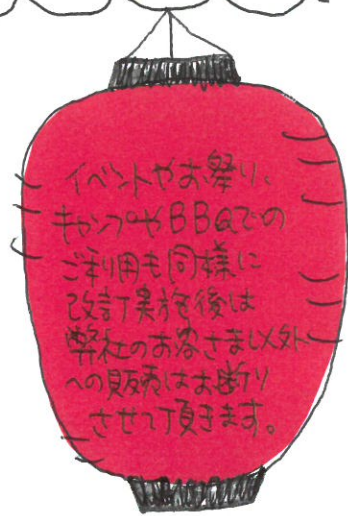 イベントやお祭り、
キャンプやBBQでの
ご利用も同様に
改訂実施後は
弊社のお客さま以外
への販売はお断り
させて頂きます。